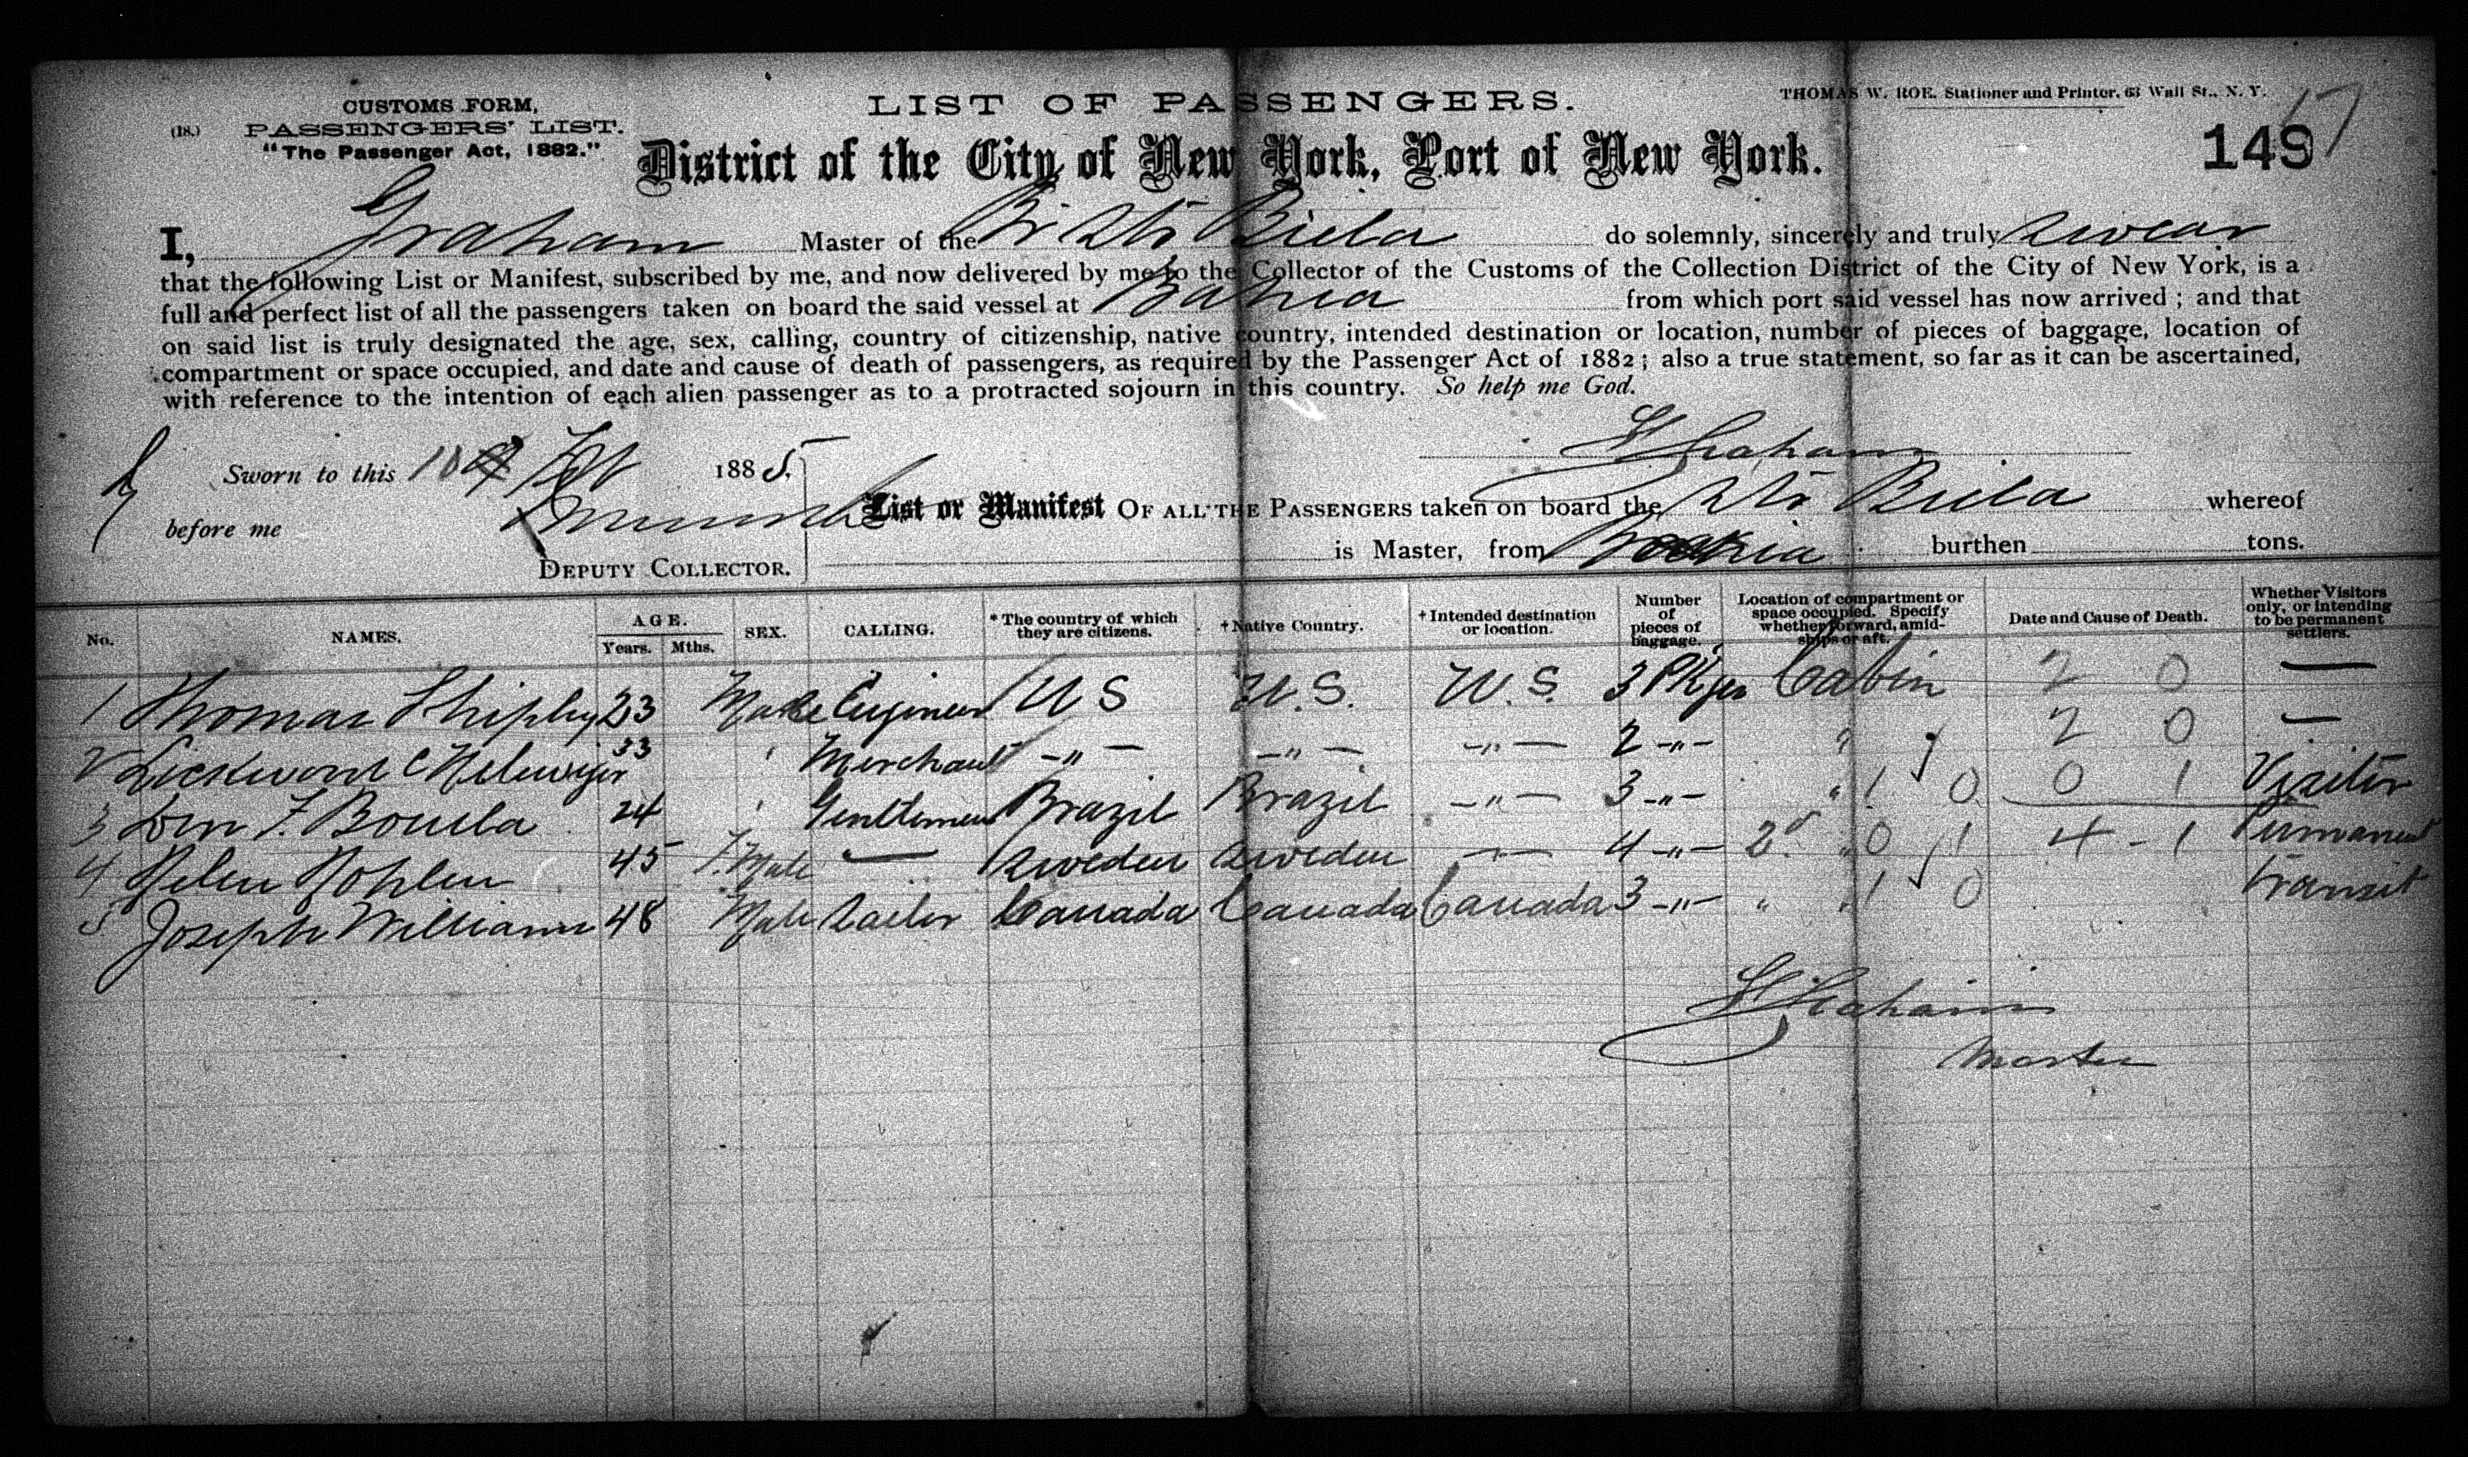 CUSTOMS FORM,
LIST OF PASSENGERS.
THOMAS W. ROE. Stationer and Printer, 63 Wall St., N. Y.
(18.) PASSENGERS' LIST.
"The Passenger Act, 1882."
District of the City of New York, Port of New York.
149
I, Graham Master of the Br Str Biela do solemnly, sincerely and truly swear
that the following List or Manifest, subscribed by me, and now delivered by me to the Collector of the Customs of the Collection District of the City of New York, is a
full and perfect list of all the passengers taken on board the said vessel at Bahia from which port said vessel has now arrived; and that
on said list is truly designated the age, sex, calling, country of citizenship, native country, intended destination or location, number of pieces of baggage, location of
compartment or space occupied, and date and cause of death of passengers, as required by the Passenger Act of 1882; also a true statement, so far as it can be ascertained,
with reference to the intention of each alien passenger as to a protracted sojourn in this country. So help me God.
Graham
Sworn to this 10 Feb 1885.
before me
DEPUTY COLLECTOR.
List or Manifest OF ALL THE PASSENGERS taken on board the Str Biela whereof
is Master, from Bahia burthen tons.
No. NAMES. AGE. Years. Mths. SEX. CALLING. * The country of which they are citizens. † Native Country. † Intended destination or location. Number of pieces of baggage. Location of compartment or space occupied. Specify whether forward, amidships or aft. Date and Cause of Death. Whether Visitors only, or intending to be permanent settlers.
1 Thomas Shipley 23 Male Engineer U S U.S. U.S. 3 Pkgs Cabin 2 0 —
2 33 " Merchant —"— —"— —"— 2 —"— " 2 0 —
3 24 " Gentleman Brazil Brazil —"— 3 —"— " 1 0 0 1 Visitor
4 Helen 45 F. Male — Sweden Sweden —"— 4 —"— 2d " 0 1 4 - 1 Permanent
5 Joseph Williams 48 Male Sailor Canada Canada Canada 3 —"— " " 1 0 Transit
Graham
Master